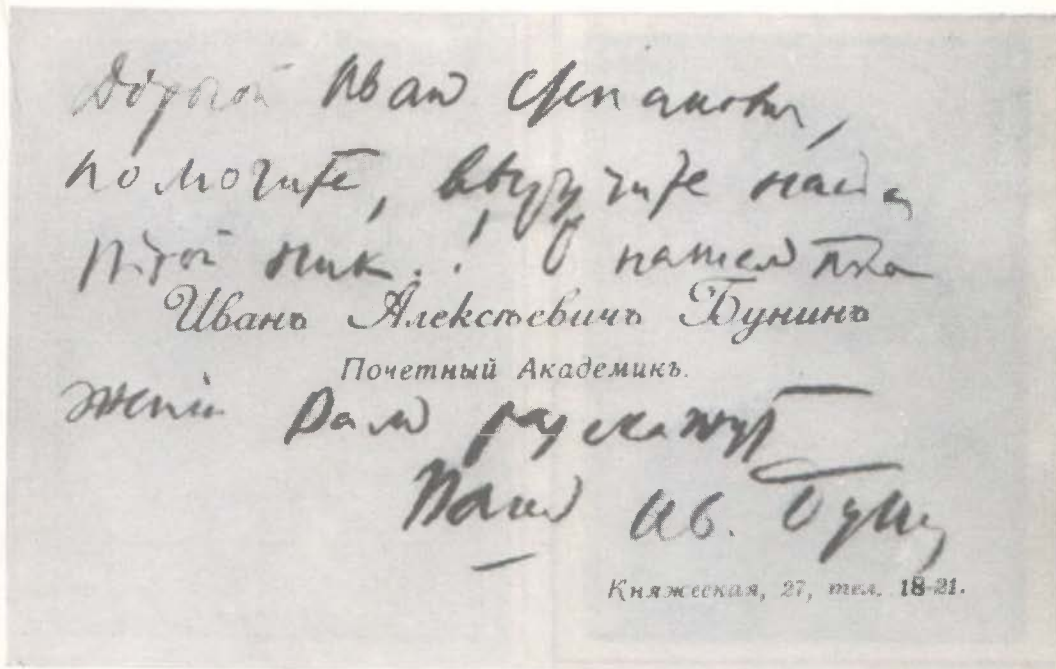 Дорогой Иван Степанович,
помогите, выручите
О нашем поло
Иванъ Алексѣевичъ Бунинъ
Почетный Академикъ.
женіи Вам разскажут
Ваш Ив. Бунин
Княжеская, 27, тел. 18-21.